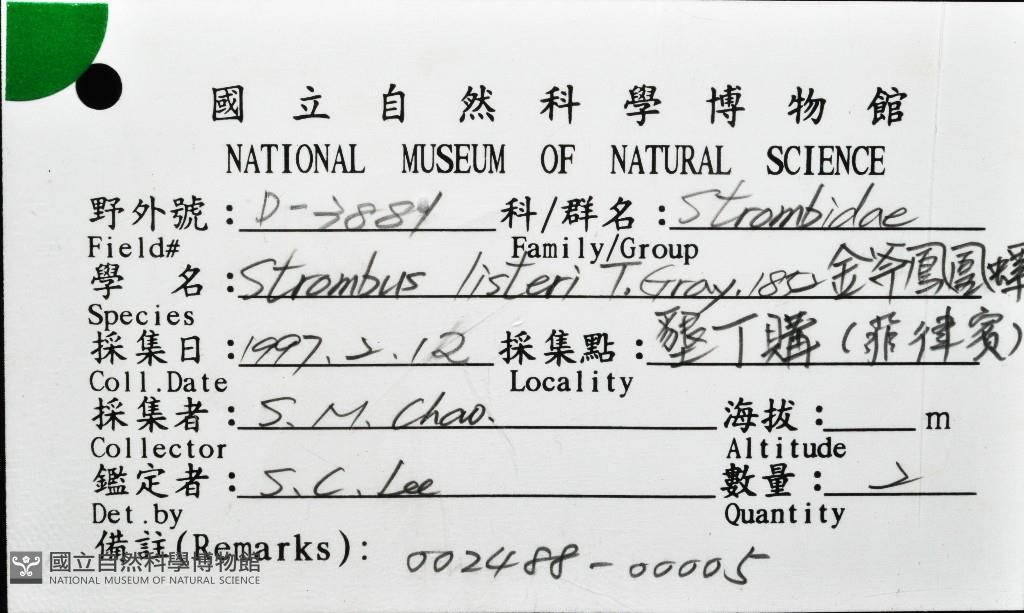 國立自然科學博物館
NATIONAL MUSEUM OF NATURAL SCIENCE
野外號: D-3884 科/群名: Strombidae
Field# Family/Group
學 名: Strombus listeri T. Gray. 1852 金斧鳳凰螺
Species
採集日: 1997.2.12 採集點: 墾丁購(菲律賓)
Coll.Date Locality
採集者: S. M. Chao. 海拔: m
Collector Altitude
鑑定者: S. C. Lee 數量: 2
Det.by Quantity
備註(Remarks): 002488-00005
國立自然科學博物館
NATIONAL MUSEUM OF NATURAL SCIENCE